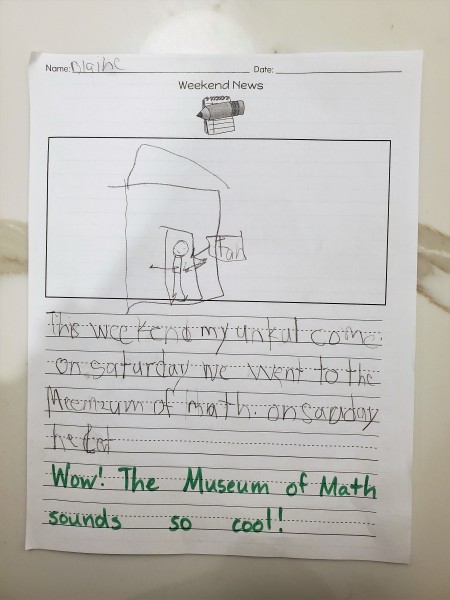 Name: Blaine Date:
Weekend News
This weekend my unkul come.
on saturday we went to the
Meemzum of math. on sapday
he
Wow! The Museum of Math
sounds so cool!